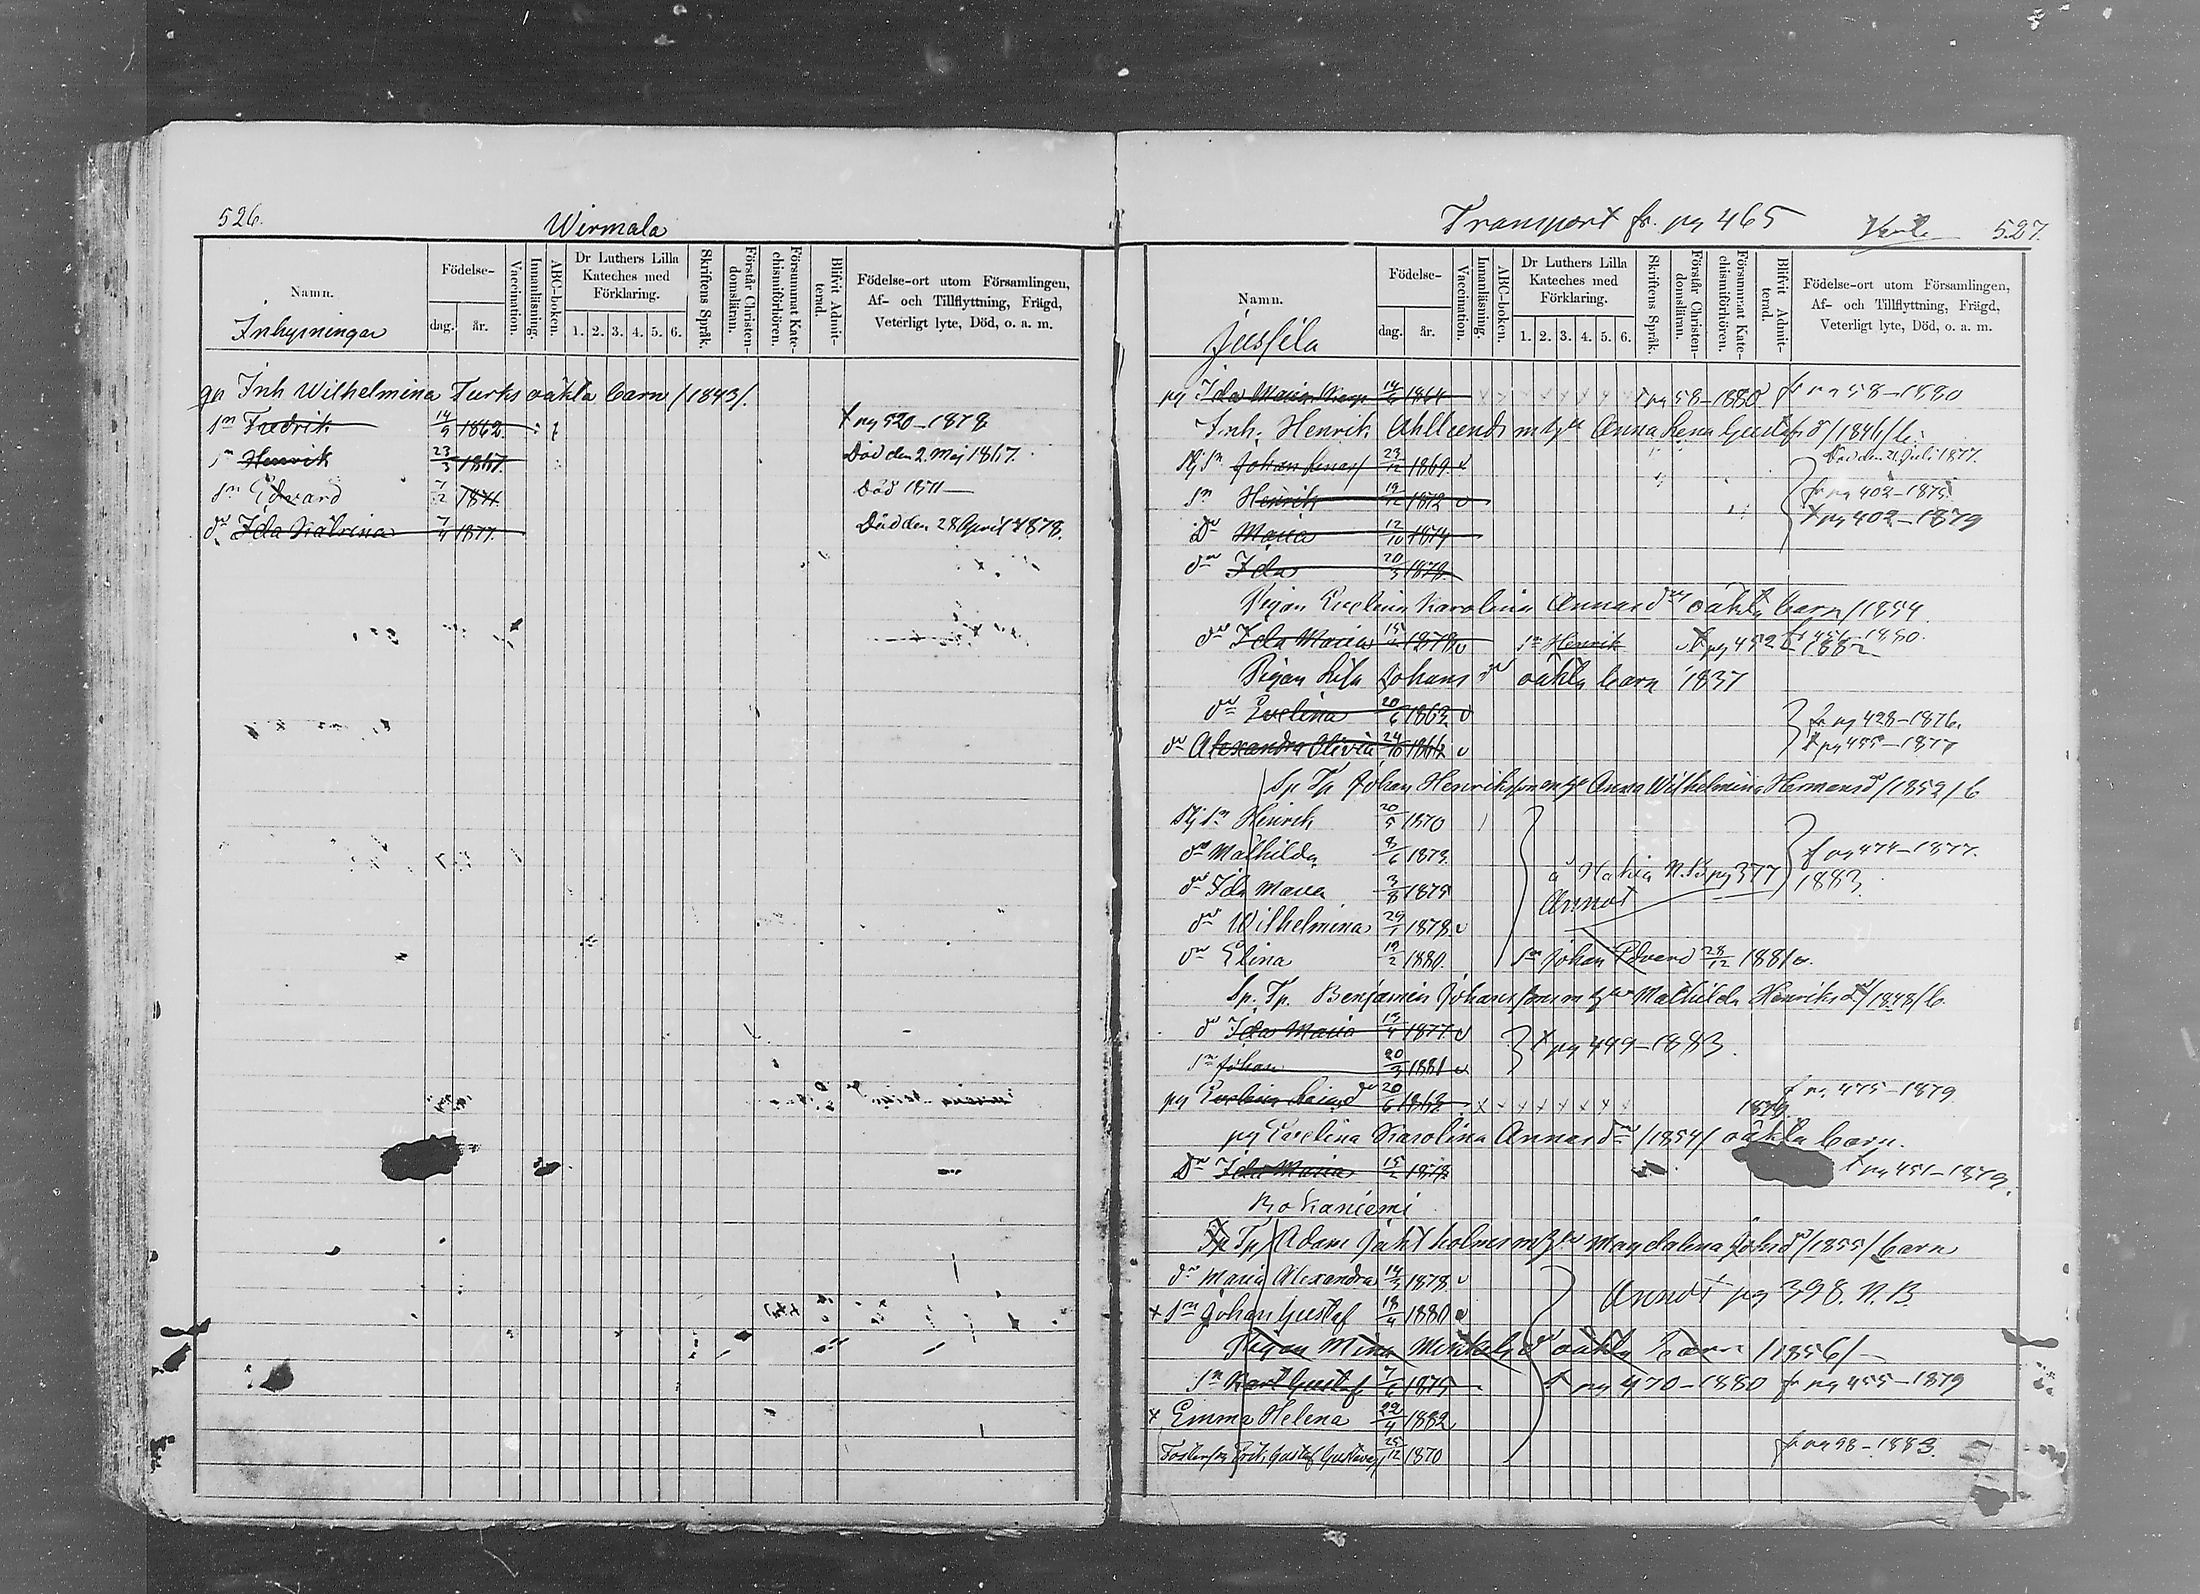 526.
Wirmala
Namn.
Födelse-
dag. år.
Vaccination.
Innanläsning.
ABC-boken.
Dr Luthers Lilla Kateches med Förklaring.
1. 2. 3. 4. 5. 6.
Skriftens Språk.
Förstår Christendomsläran.
Försummat Katechismiförhören.
Blifvit Admitterad.
Födelse-ort utom Församlingen, Af- och Tillflyttning, Frägd, Veterligt lyte, Död, o. a. m.
Inhysningar
Inh Wilhelmina Turks oäkta barn /1843/.
sn Fredrik 14/9 1862 pg 520–1878
sn Henrik 23/3 1867 Död den 2. Maj 1867.
sn Edvard 7/2 1871 Död 1871–
dr Ida Katrina 7/4 1877. Död den 28 April 1878.
Transport fr. pg 465
527.
Namn.
Födelse-
dag. år.
Vaccination.
Innanläsning.
ABC-boken.
Dr Luthers Lilla Kateches med Förklaring.
1. 2. 3. 4. 5. 6.
Skriftens Språk.
Förstår Christendomsläran.
Försummat Katechismiförhören.
Blifvit Admitterad.
Födelse-ort utom Församlingen, Af- och Tillflyttning, Frägd, Veterligt lyte, Död, o. a. m.
Jussila
pg Ida Maria 1864 pg 58–1880 fr pg 58–1880
Inh. Henrik Ahllund m hu Anna Lena Gustafsd /1846/ b.
Johan 23/12 1869 Död den 21 Juli 1877
sn Henrik 19/12 1872 fr pg 402–1875
dr Maria 12/10 1874 pg 402–1879
dr Ida 20/3 1878
Pigan Evelina Karolina Annas dr oäkta barn /1854
dr Ida Maria 15/2 1878 sn Henrik pg 452 1882 1880.
Pigan Lisa Johans dr oäkta barn 1837
dr Evelina 20/6 1863 fr pg 428–1876.
dr Alexandra Olivia 24/10 1866 pg 455–1877
Sp Tp Johan Henriksson m hu Anna Wilhelmina Hermansd /1852/ b
sn Henrik 20/5 1870
dr Mathilda 8/6 1873. fr pg 474–1877.
dr Ida Maria 3/8 1875 å N.B. pg 377 1883
Annot
dr Wilhelmina 29/1 1878
dr Elina 19/2 1880. sn Johan Edvard 28/12 1881
Sp. Tp. Benjamin Johansson m hu Mathilda Henriksd /1848/ b
dr Ida Maria 13/4 1877 pg 499–1883.
sn Johan 20/3 1881
pg Evelina 20/6 1863 fr pg 475–1879
1879
pg Evelina Karolina Annas dr /1854/ oäkta barn.
dr Ida Maria 15/2 1878 pg 451–1879.
Rokaniemi
Sp Tp Adam m hu Magdalena Johsd /1855/ barn
dr Maria Alexandra 14/3 1878
Annot pg 398. N.B.
+ sn Johan Gustaf 18/4 1880
Pigan Mina Mikkelsd oäkta barn /1856/–
sn Karl Gustaf 7/6 1875 pg 470–1880 fr pg 455–1879
+ Emma Helena 22/4 1882
Erik Gustaf 25/12 1870 fr pg 98–1883